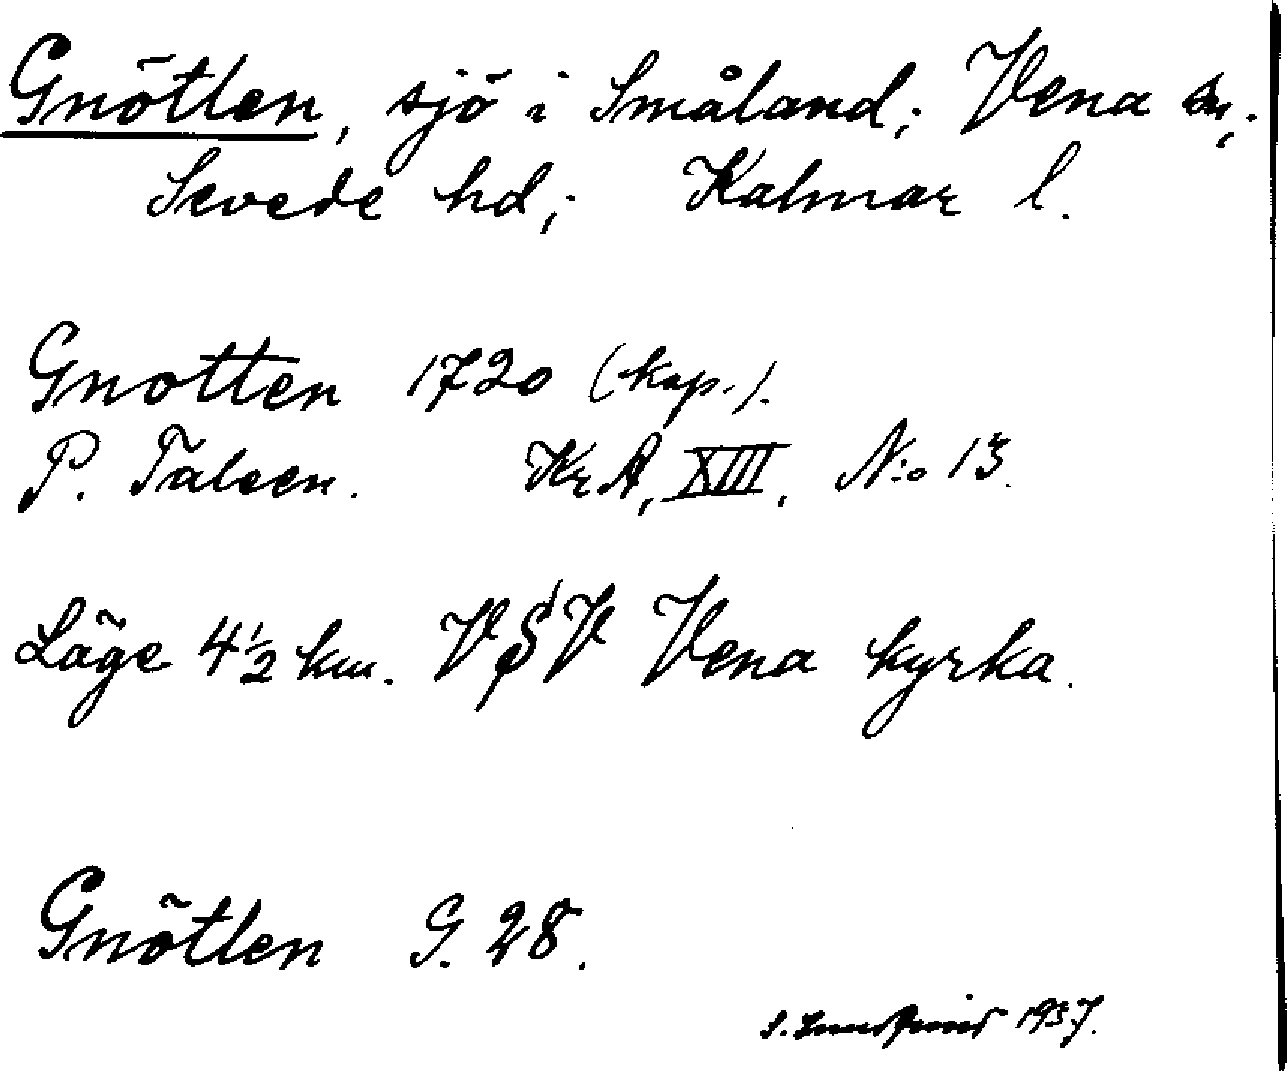 Gnötlen, sjö i Småland; Vena sn;
Sevede hd; Kalmar l.
Gnotten 1720 (kop.).
P. Taleen. KrA, XIII, N:o 13.
Läge 4 1/2 km. VSV Vena kyrka.
Gnötlen G. 28.
1937.